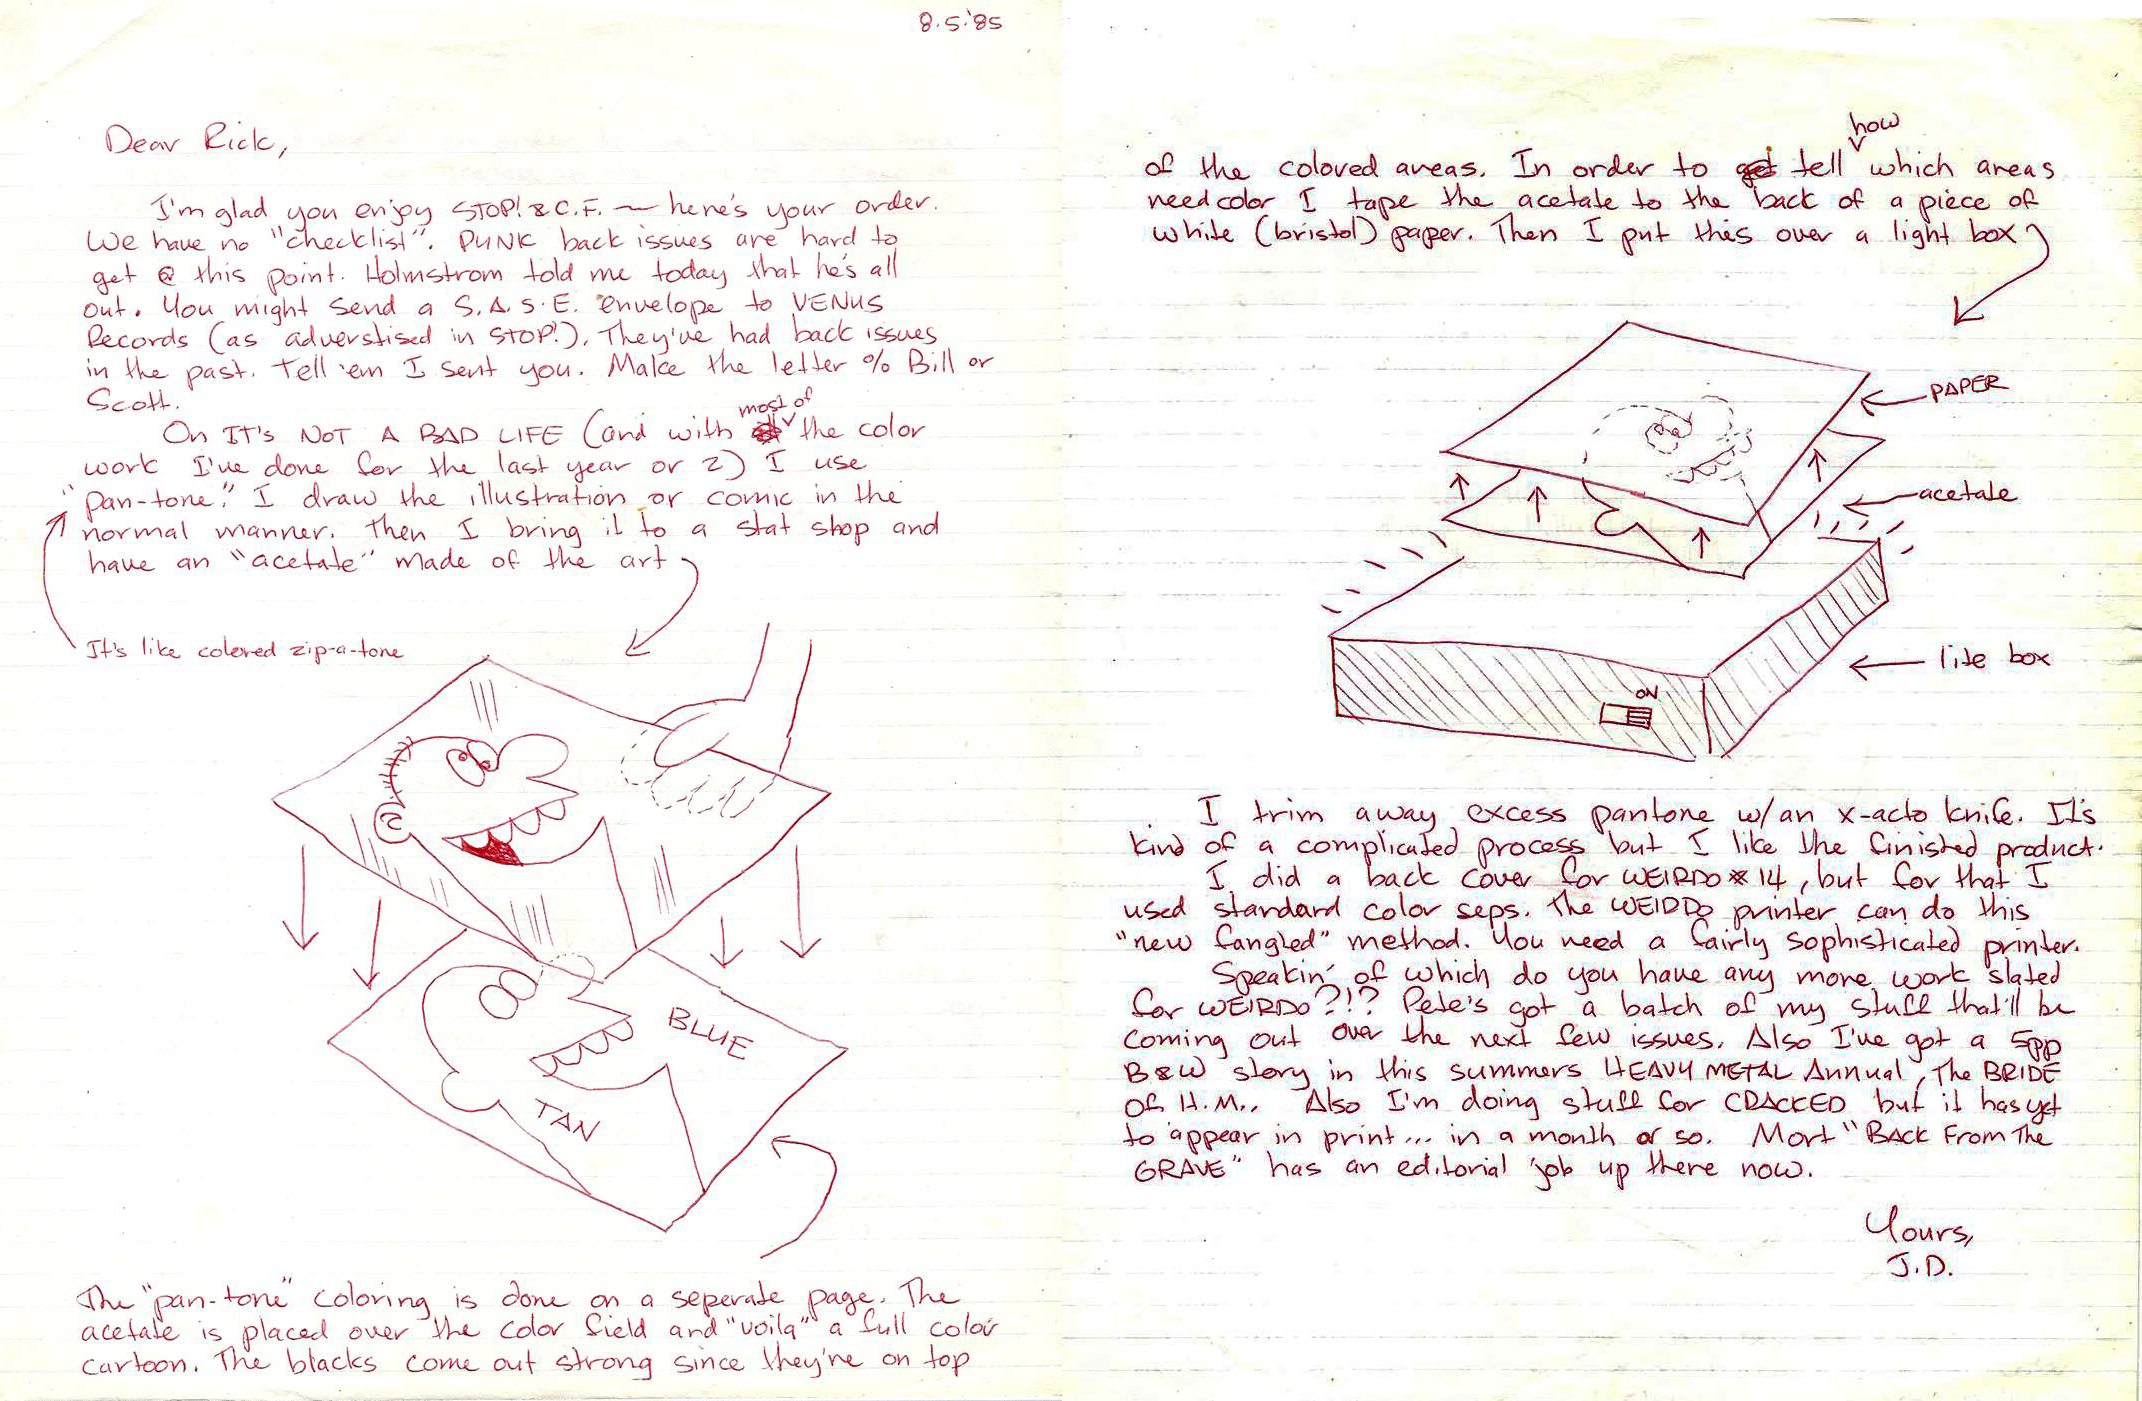 8.5.'85
Dear Rick,
I'm glad you enjoy STOP! & C.F. — here's your order.
We have no "checklist". PUNK back issues are hard to
get @ this point. Holmstrom told me today that he's all
out. You might send a S.A.S.E. envelope to VENUS
Records (as adverstised in STOP!). They've had back issues
in the past. Tell 'em I sent you. Make the letter % Bill or
Scott.
On IT'S NOT A BAD LIFE (and with most of the color
work I've done for the last year or 2) I use
"pan-tone". I draw the illustration or comic in the
normal manner. Then I bring it to a stat shop and
have an "acetate" made of the art
It's like colored zip-a-tone
BLUE
TAN
The "pan-tone" coloring is done on a seperate page. The
acetate is placed over the color field and "voila" a full color
cartoon. The blacks come out strong since they're on top
of the colored areas. In order to tell how which areas
need color I tape the acetate to the back of a piece of
white (bristol) paper. Then I put this over a light box
PAPER
acetate
lite box
ON
I trim away excess pantone w/an x-acto knife. It's
kind of a complicated process but I like the finisted product.
I did a back cover for WEIRDO # 14, but for that I
used standard color seps. The WEIRDO printer can do this
"new fangled" method. You need a fairly sophisticated printer.
Speakin' of which do you have any more work slated
for WEIRDO?!? Pete's got a batch of my stuff that'll be
coming out over the next few issues. Also I've got a 5pp
B&W story in this summers HEAVY METAL Annual, The BRIDE
of H.M.. Also I'm doing stuff for CRACKED but it has yet
to appear in print... in a month or so. Mort "BACK FROM THE
GRAVE" has an editorial job up there now.
Yours,
J.D.